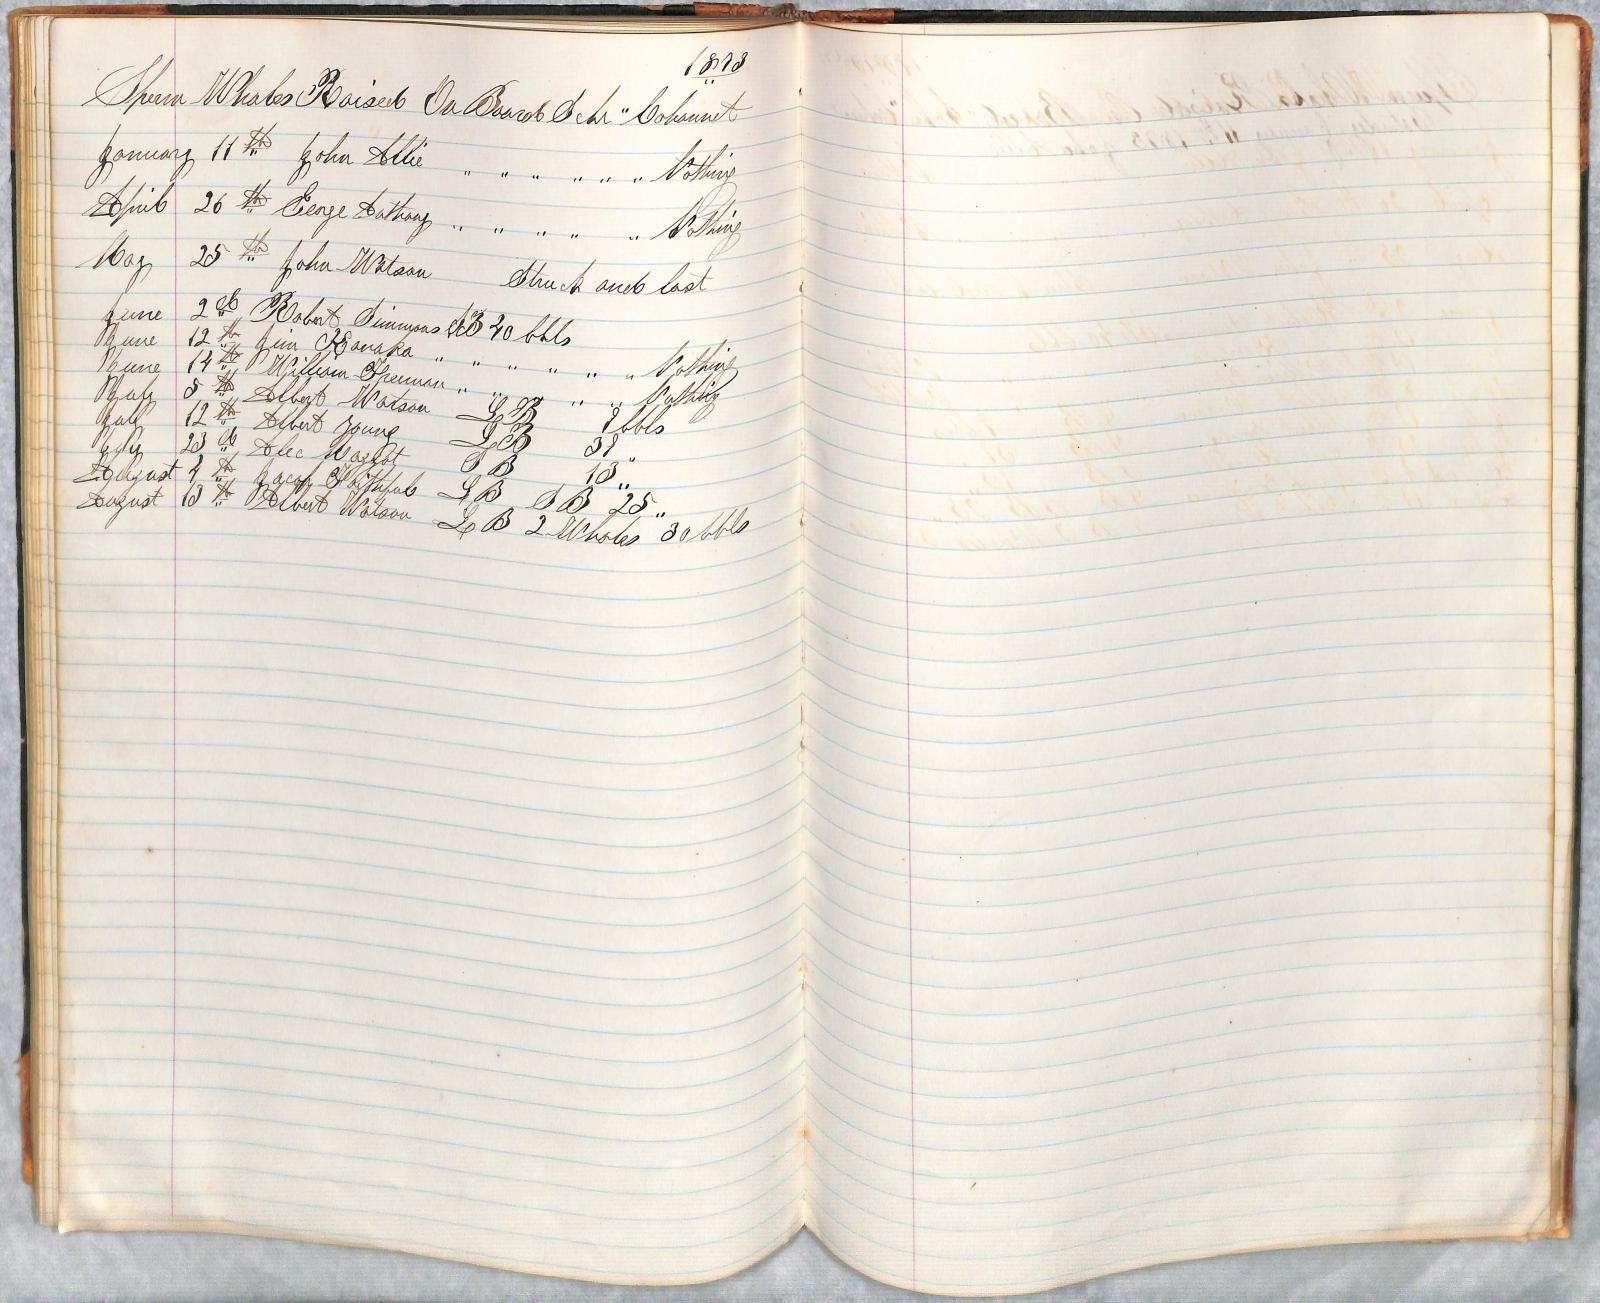 1878
Sperm Whales Raised On Board Schr "Cohannet
January 11th John Allie " " " " " " Nothing
April 26th George Anthony " " " " " Nothing
May 25th John Watson Struck and lost
June 2d Robert Simmons LB 40 bbls
June 12th Jim Kanaka " " " " " " Nothing
June 14th William Freeman " " " " Nothing
July 5th Albert Watson LB bbls
July 12th Albert Young LB
July 23d Alec SB 13 "
August 4th Jacob Faithful LB SB 25 "
August 13th Albert Watson LB 2 Whales 30 bbls